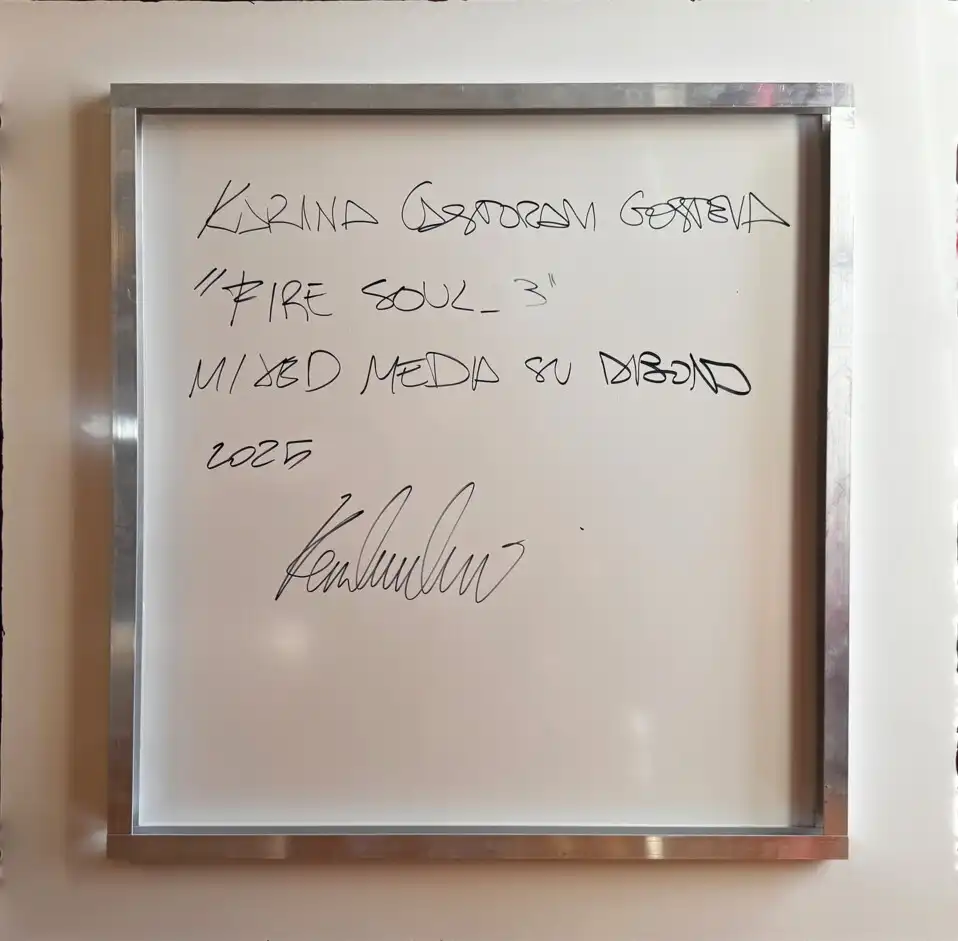 KARINA CASTORANI GOSTEVA
"FIRE SOUL_3"
MIXED MEDIA SU DIBOND
2025